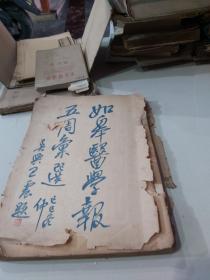 如皋醫學報
五周彙選
吳興王震題